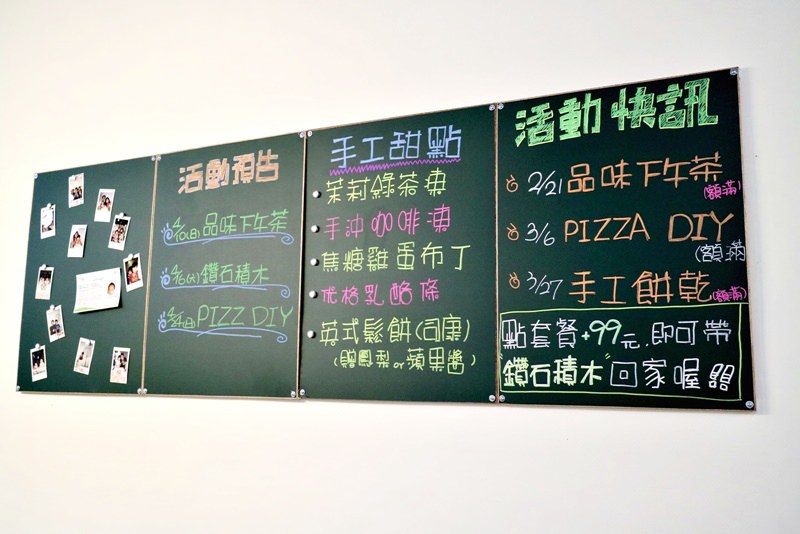 活動預告
4/10(日)品味下午茶
4/16(六)鑽石積木
4/24(日)PIZZ DIY
手工甜點
茉莉綠茶凍
手沖咖啡凍
焦糖雞蛋布丁
优格乳酪條
英式鬆餅(司康)
(贈鳳梨or蘋果醬)
活動快訊
2/21品味下午茶(額滿)
3/6 PIZZA DIY
(額滿)
3/27手工餅乾(額滿)
點套餐+99元,即可帶
"鑽石積木"回家喔